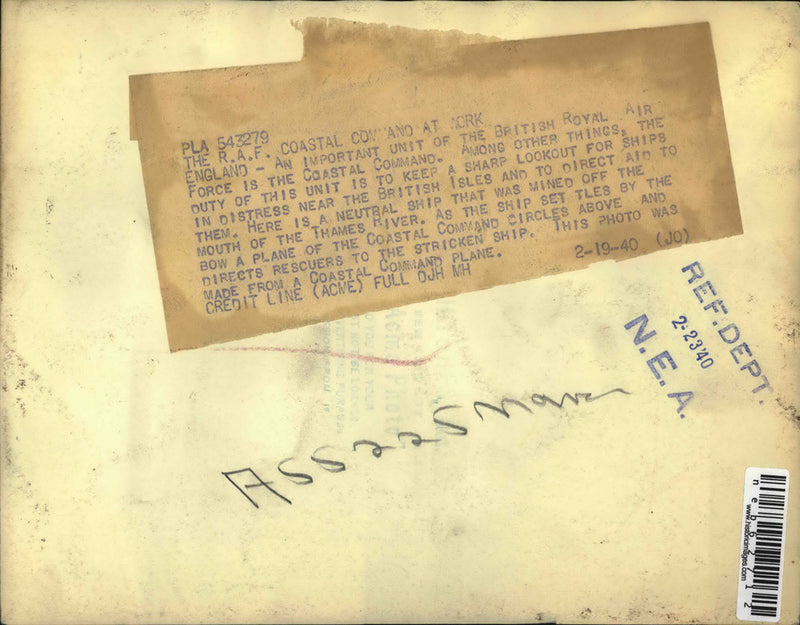 PLA 543279
COASTAL COMMAND AT WORK
THE R.A.F.
ENGLAND - AN IMPORTANT UNIT OF THE BRITISH ROYAL AIR
FORCE IS THE COASTAL COMMAND. AMONG OTHER THINGS, THE
DUTY OF THIS UNIT IS TO KEEP A SHARP LOOKOUT FOR SHIPS
IN DISTRESS NEAR THE BRITISH ISLES AND TO DIRECT AID TO
THEM. HERE IS A NEUTRAL SHIP THAT WAS MINED OFF THE
MOUTH OF THE THAMES RIVER. AS THE SHIP SET TLES BY THE
BOW A PLANE OF THE COASTAL COMMAND CIRCLES ABOVE AND
DIRECTS RESCUERS TO THE STRICKEN SHIP. THIS PHOTO WAS
MADE FROM A COASTAL COMMAND PLANE.
CREDIT LINE (ACME) FULL DJH MH 2-19-40 (JO)
REF. DEPT.
2-23'40
N.E.A.
www.historicimages.com